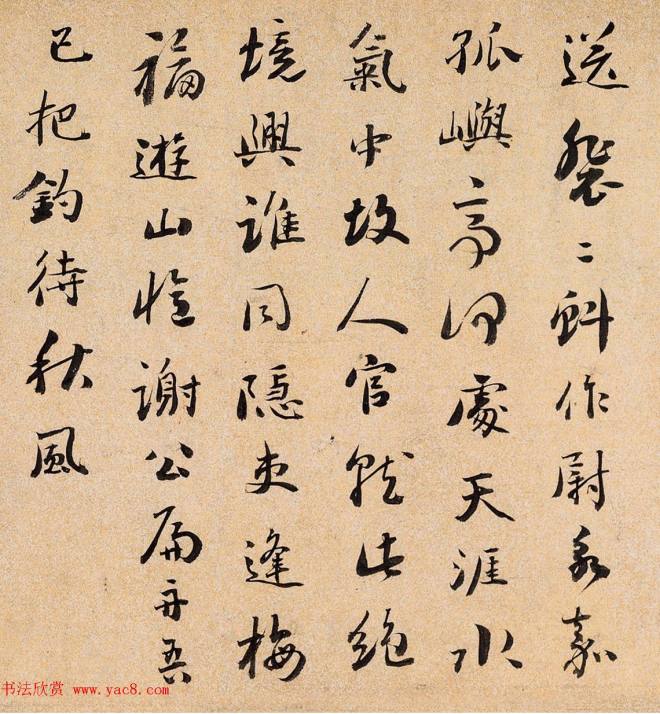 送裴二蚪作尉永嘉
孤嶼亭何處天涯水
氣中故人官就此絕
境興誰同隱吏逢梅
福遊山憶謝公扁舟吾
已把釣待秋風
书法欣赏 www.yac8.com